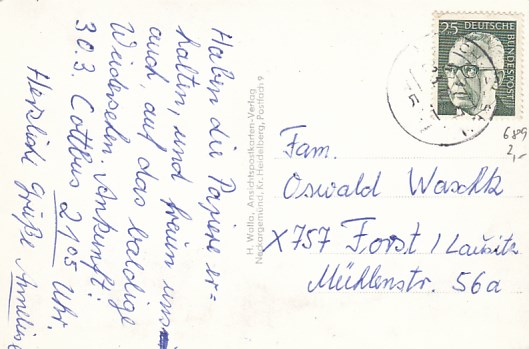 Habn die Papiere er=
halten, und freun uns
auch, auf das baldige
Wiedersehn. Ankunft:
30.3. Cottbus 21⁰⁵ Uhr.
Herzliche Grüße Annelies
H. Walla, Ansichtspostkarten-Verlag
Neckargemünd, Kr. Heidelberg, Postfach 9
25 DEUTSCHE
BUNDESPOST
689
2,-
Fam.
Oswald Waschk
X757 Forst / Lausitz
Mühlenstr. 56a